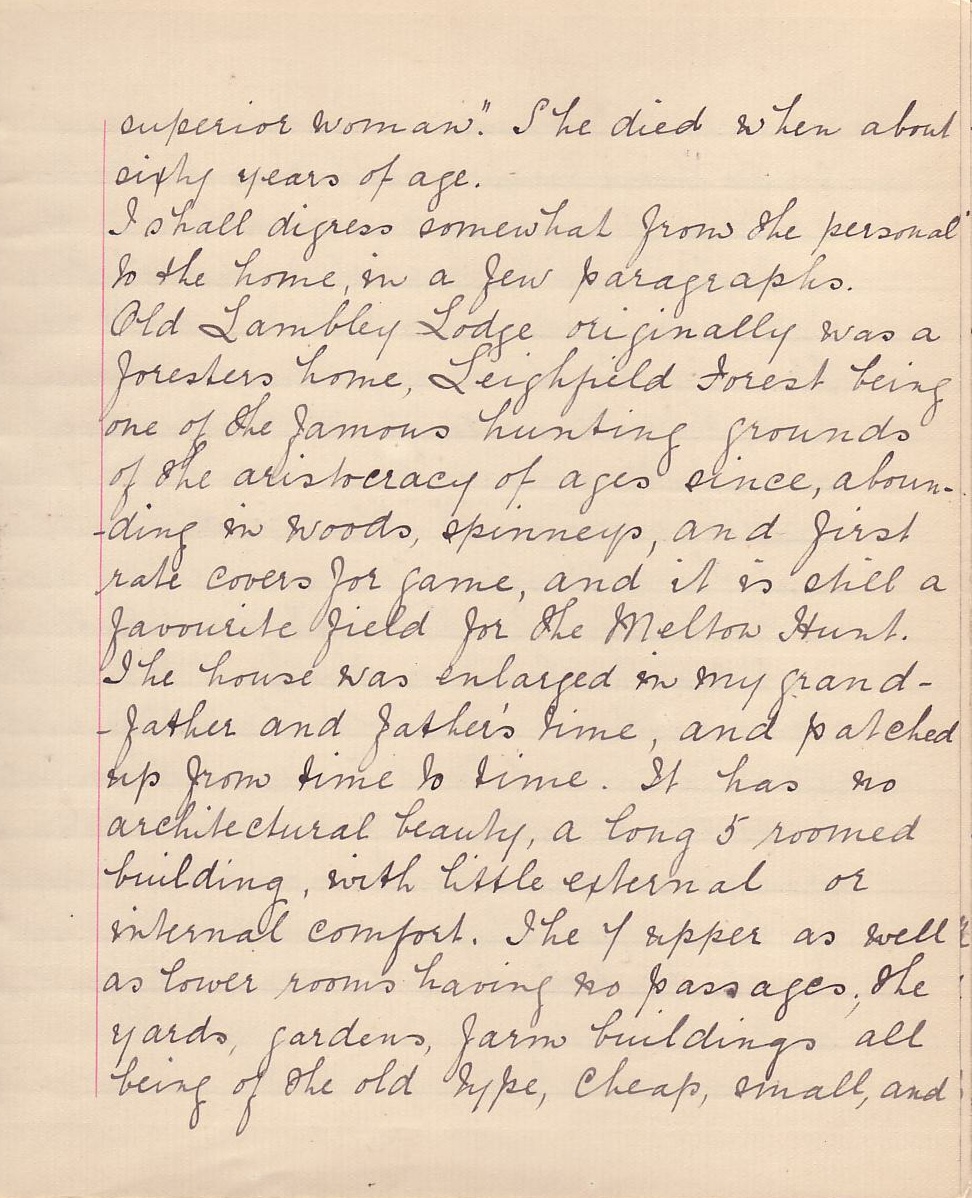 superior woman". She died when about
sixty years of age.
I shall digress somewhat from the personal
to the home, in a few paragraphs.
Old Lambley Lodge originally was a
foresters home, Leighfield Forest being
one of the famous hunting grounds
of the aristocracy of ages since, aboun-
-ding in woods, spinneys, and first
rate covers for game, and it is still a
favourite field for the Melton Hunt.
The house was enlarged in my grand-
-father and father's time, and patched
up from time to time. It has no
architectural beauty, a long 5 roomed
building, with little external or
internal comfort. The upper as well
as lower rooms having no passages, the
yards, gardens, farm buildings all
being of the old type, cheap, small, and